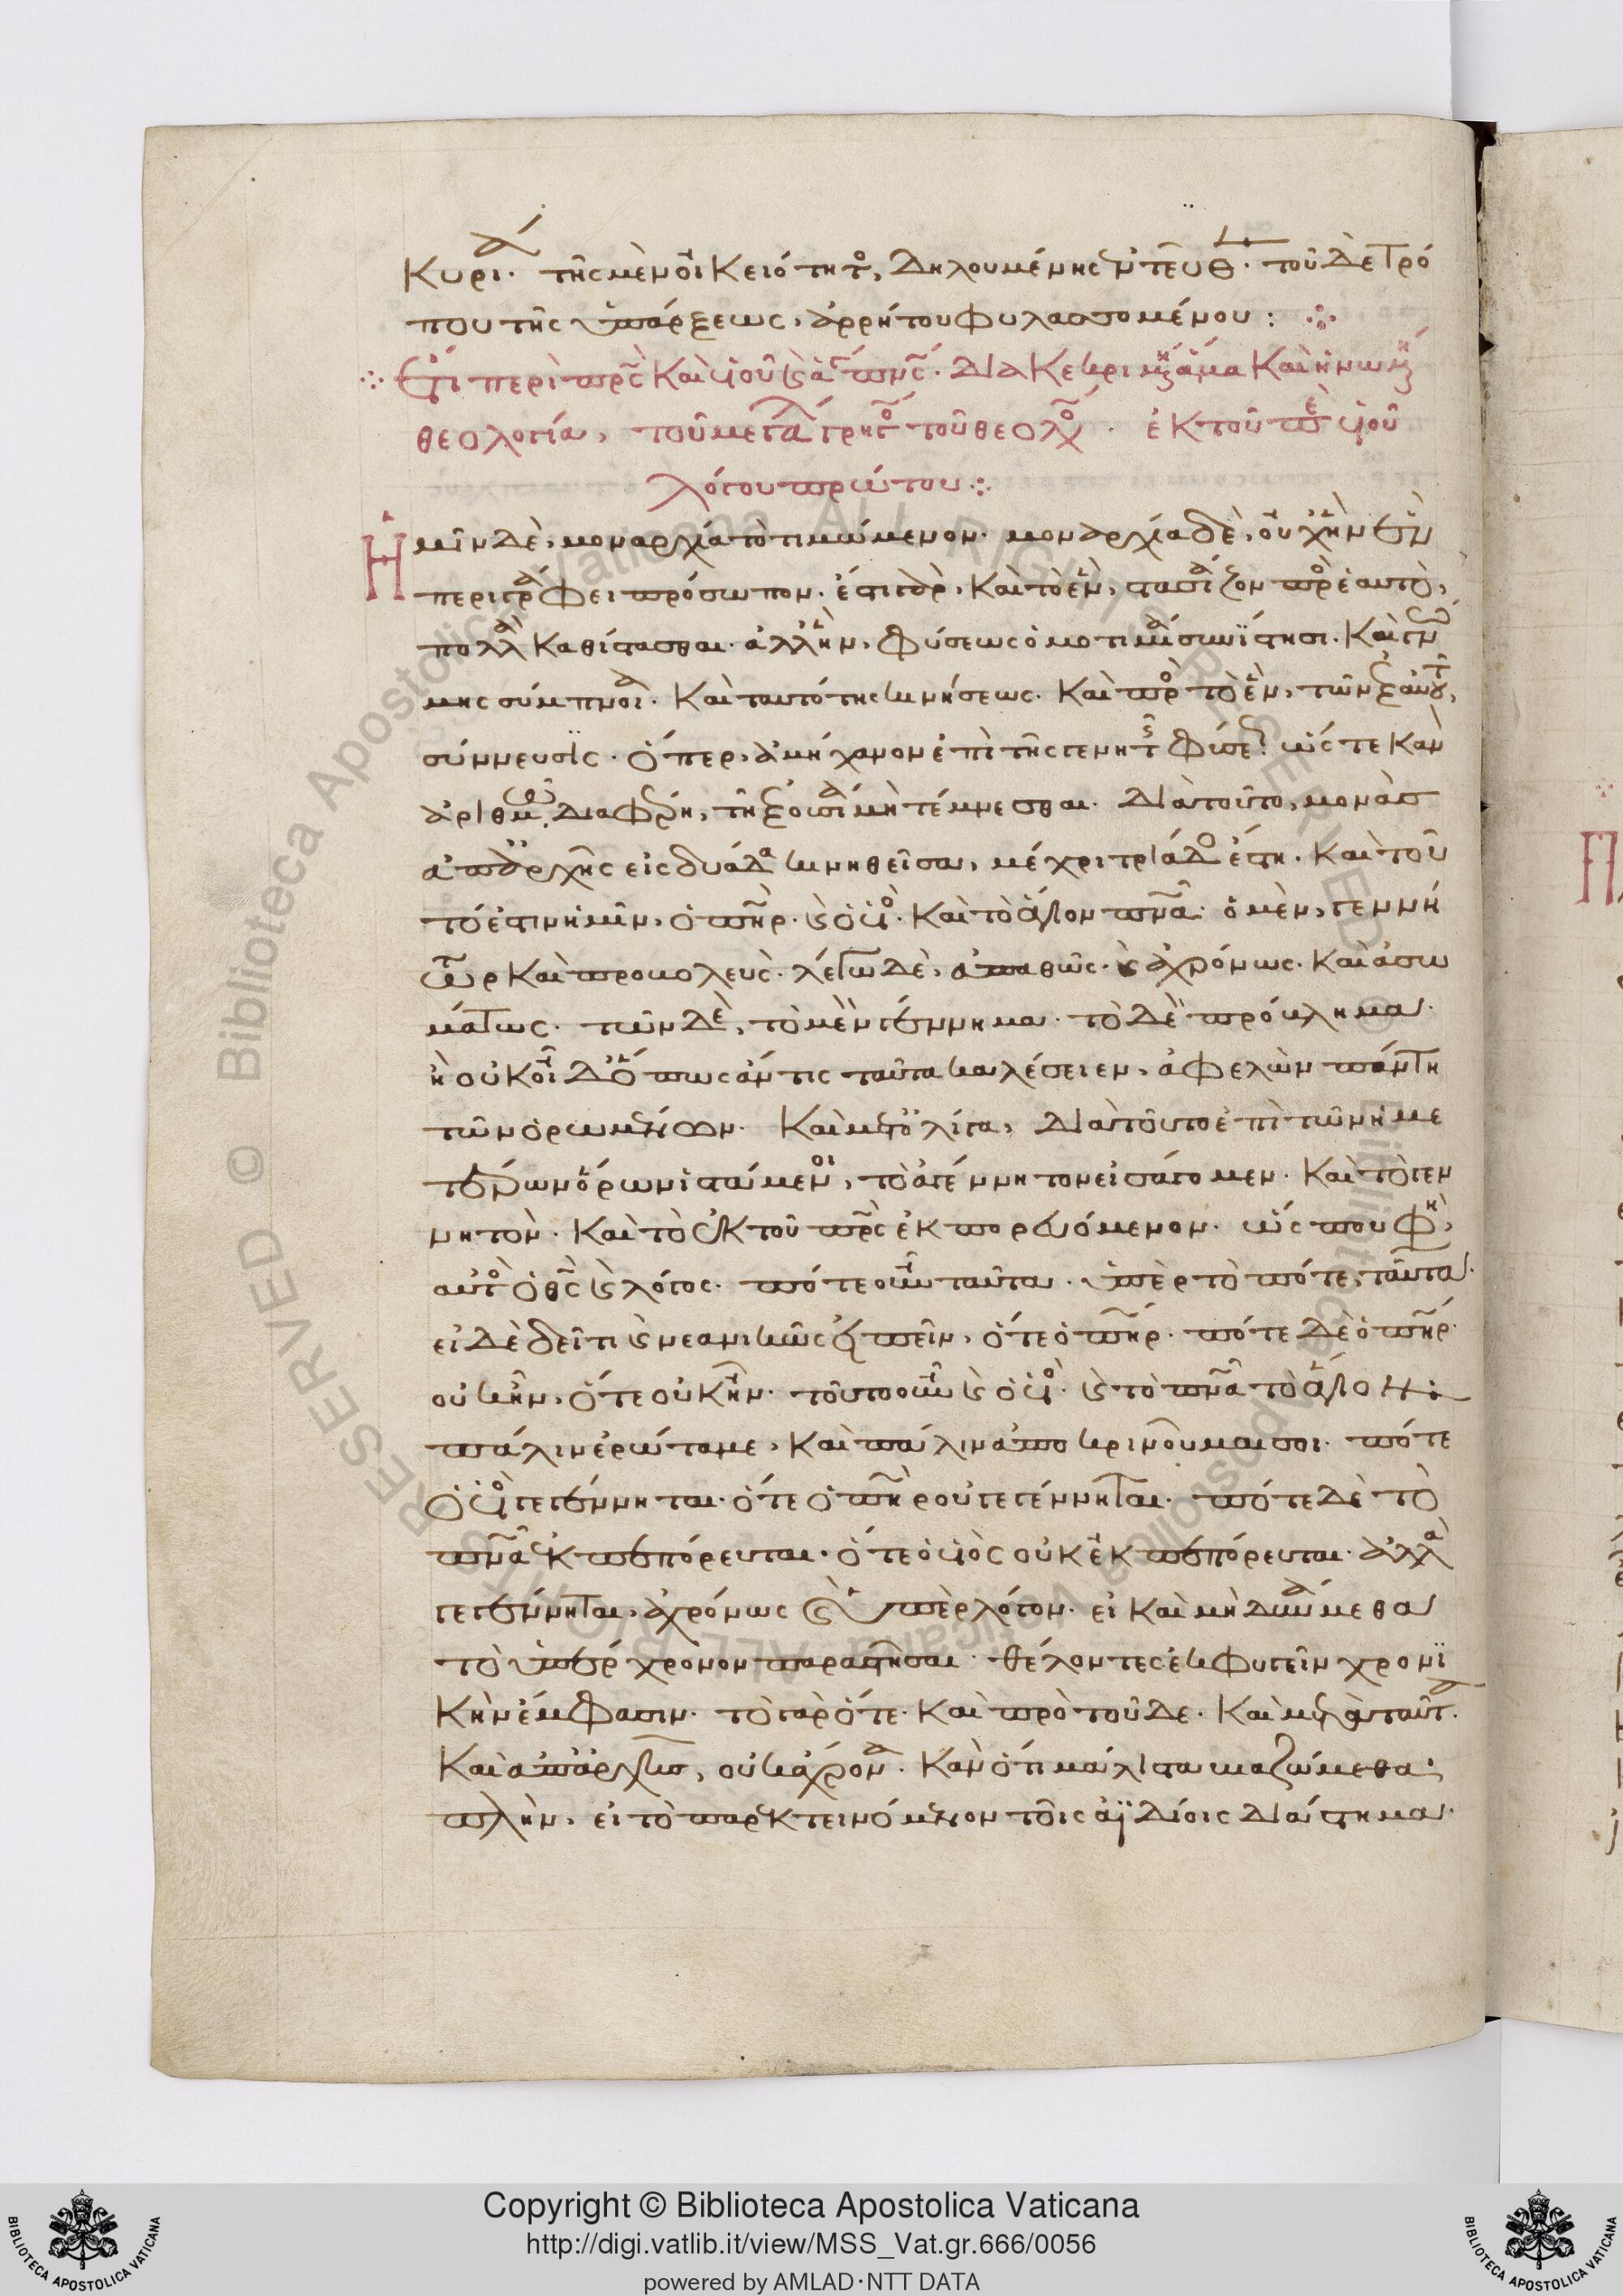 κυρία. τῆς μὲν οἰκειότητος, δηλουμένης ἐντεῦθεν. τοῦ δὲ τρό
που τῆς ὑπάρξεως, ἀρρήτου φυλασσομένου :
Ἔτι περὶ πρς καὶ υἱοῦ καὶ ἁγίου πνς. διακεκριμένη ἅμα καὶ ἡνωμένη
θεολογία, τοῦ μεγάλου γρηγορίου τοῦ θεολόγου. ἐκ τοῦ περὶ υἱοῦ
λόγου πρώτου :
Ἡμῖν δὲ, μοναρχία τὸ τιμώμενον. μοναρχία δὲ, οὐχ ἣν ἓν
περιγράφει πρόσωπον. ἔστι γὰρ, καὶ τὸ ἓν, στασιάζον πρὸς ἑαυτὸ,
πολλὰ καθίστασθαι. ἀλλ' ἣν, φύσεως ὁμοτιμία συνίστησι. καὶ γνώ
μης σύμπνοια. καὶ ταυτότης κινήσεως. καὶ πρὸς τὸ ἓν, τῶν ἐξ αὐτοῦ,
σύννευσις. ὅπερ, ἀμήχανον ἐπὶ τῆς γενητῆς φύσεως. ὥστε κἂν
ἀριθμῷ διαφέρῃ, τῇ ἐξουσίᾳ μὴ τέμνεσθαι. διὰ τοῦτο, μονὰς
ἀπ' ἀρχῆς εἰς δυάδα κινηθεῖσα, μέχρι τριάδος ἔστη. καὶ τοῦ
τό ἐστιν ἡμῖν, ὁ πηρ. καὶ ὁ υἱὸς. καὶ τὸ ἅγιον πνα. ὁ μὲν, γεννή
τωρ καὶ προβολεὺς. λέγω δὲ, ἀπαθῶς. καὶ ἀχρόνως. καὶ ἀσω
μάτως. τῶν δὲ, τὸ μὲν γέννημα. τὸ δὲ πρόβλημα.
ἢ οὐκ οἶδ' ὅπως ἄν τις ταῦτα καλέσειεν, ἀφελὼν πάντη
τῶν ὁρωμένων. καὶ μετ' ὀλίγα, διὰ τοῦτο ἐπὶ τῶν ἡμε
τέρων ὅρων ἱστάμενοι, τὸ ἀγέννητον εἰσάγομεν. καὶ τὸ γεν
νητὸν. καὶ τὸ ἐκ τοῦ πρς ἐκπορευόμενον. ὥς που φη,
αὐτὸς ὁ θς καὶ λόγος. πότε οὖν ταῦτα. ὑπὲρ τὸ πότε, ταῦτα.
εἰ δὲ δεῖ τι καὶ νεανικῶς εἰπεῖν, ὅτε ὁ πηρ. πότε δὲ ὁ πηρ.
οὐκ ἦν, ὅτε οὐκ ἦν. τοῦτο οὖν καὶ ὁ υἱὸς. καὶ τὸ πνα τὸ ἅγιον :
πάλιν ἐρώτα με, καὶ πάλιν ἀποκρινοῦμαι σοι. πότε
ὁ υἱὸς γεγέννηται. ὅτε ὁ πηρ οὐ γεγέννηται. πότε δὲ τὸ
πνα ἐκπεπόρευται. ὅτε ὁ υἱὸς οὐκ ἐκπεπόρευται. ἀλλὰ
γεγέννηται, ἀχρόνως καὶ ὑπὲρ λόγον. εἰ καὶ μὴ δυνάμεθα
τὸ ὑπὲρ χρόνον παραστῆσαι. θέλοντες ἐκφυγεῖν χρονι
κὴν ἔμφασιν. τὸ γὰρ ὅτε. καὶ πρὸ τοῦδε. καὶ μετὰ ταῦτα.
καὶ ἀπ' ἀρχῆς, οὐκ ἄχρονα. κἂν ὅτι μάλιστα βιαζώμεθα.
πλὴν, εἰ τὸ παρεκτεινόμενον τοῖς ἀϊδίοις διάστημα.
Copyright © Biblioteca Apostolica Vaticana
http://digi.vatlib.it/view/MSS_Vat.gr.666/0056
powered by AMLAD·NTT DATA